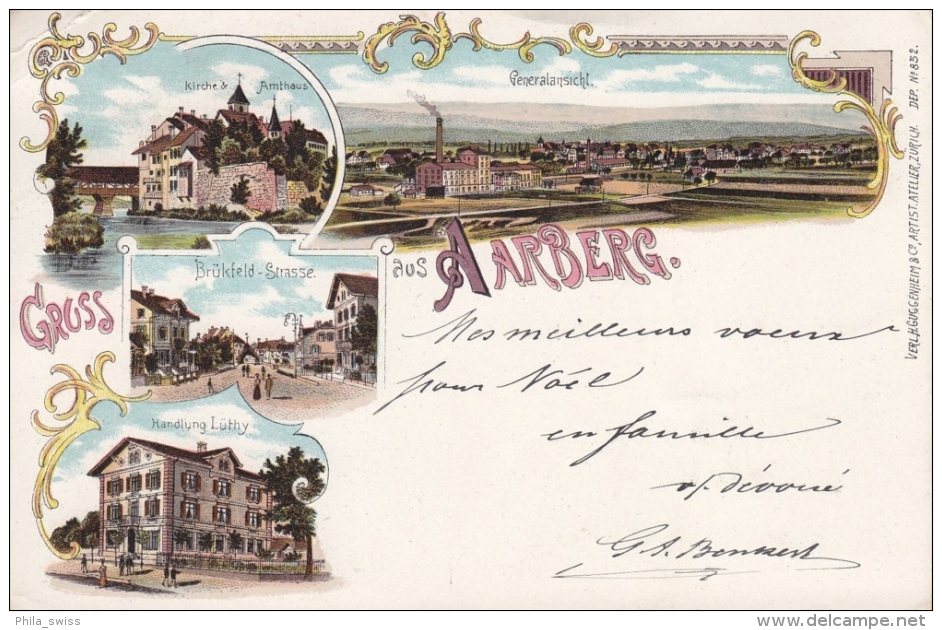 Kirche & Amthaus
Generalansicht.
Brükfeld-Strasse.
GRUSS
aus AARBERG.
Handlung Lüthy
Mes meilleurs voeux
pour Noël
en famille
dévoué
VERL. H. GUGGENHEIM & Co, ARTIST. ATELIER, ZÜRICH. DEP. No 832.
Phila_swiss
delcampe.net